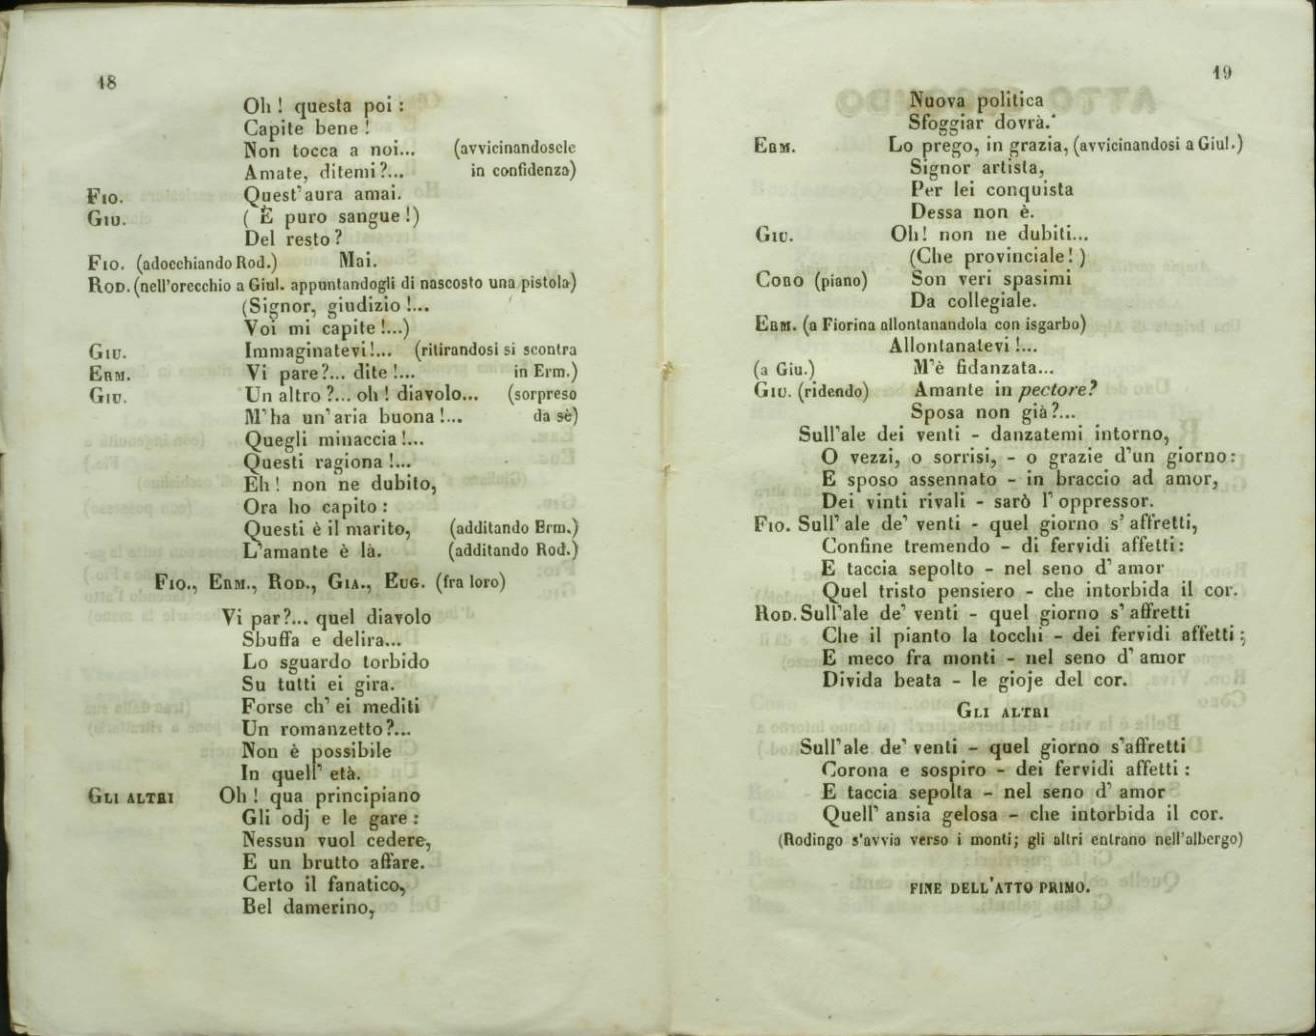 18
Oh ! questa poi :
Capite bene !
Non tocca a noi... (avvicinandosele
Amate, ditemi ?... in confidenza)
Fio. Quest'aura amai.
Giu. ( È puro sangue !)
Del resto ?
Fio. (adocchiando Rod.) Mai.
Rod. (nell'orecchio a Giul. appuntandogli di nascosto una pistola)
(Signor, giudizio !...
Voi mi capite !...)
Giu. Immaginatevi !... (ritirandosi si scontra
Erm. Vi pare ?... dite !... in Erm.)
Giu. Un altro ?... oh ! diavolo... (sorpreso
M'ha un'aria buona !... da sè)
Quegli minaccia !...
Questi ragiona !...
Eh ! non ne dubito,
Ora ho capito :
Questi è il marito, (additando Erm.)
L'amante è là. (additando Rod.)
Fio., Erm., Rod., Gia., Eug. (fra loro)
Vi par ?... quel diavolo
Sbuffa e delira...
Lo sguardo torbido
Su tutti ei gira.
Forse ch' ei mediti
Un romanzetto ?...
Non è possibile
In quell' età.
Gli altri Oh ! qua principiano
Gli odj e le gare :
Nessun vuol cedere,
E un brutto affare.
Certo il fanatico,
Bel damerino,
19
Nuova politica
Sfoggiar dovrà.
Erm. Lo prego, in grazia, (avvicinandosi a Giul.)
Signor artista,
Per lei conquista
Dessa non è.
Giu. Oh! non ne dubiti...
(Che provinciale ! )
Coro (piano) Son veri spasimi
Da collegiale.
Erm. (a Fiorina allontanandola con isgarbo)
Allontanatevi !...
(a Giu.) M'è fidanzata...
Giu. (ridendo) Amante in pectore?
Sposa non già ?...
Sull'ale dei venti - danzatemi intorno,
O vezzi, o sorrisi, - o grazie d'un giorno :
E sposo assennato - in braccio ad amor,
Dei vinti rivali - sarò l' oppressor.
Fio. Sull' ale de' venti - quel giorno s' affretti,
Confine tremendo - di fervidi affetti :
E taccia sepolto - nel seno d' amor
Quel tristo pensiero - che intorbida il cor.
Rod. Sull'ale de' venti - quel giorno s' affretti
Che il pianto la tocchi - dei fervidi affetti ;
E meco fra monti - nel seno d' amor
Divida beata - le gioje del cor.
Gli altri
Sull'ale de' venti - quel giorno s'affretti
Corona e sospiro - dei fervidi affetti :
E taccia sepolta - nel seno d' amor
Quell' ansia gelosa - che intorbida il cor.
(Rodingo s'avvia verso i monti; gli altri entrano nell'albergo)
FINE DELL'ATTO PRIMO.